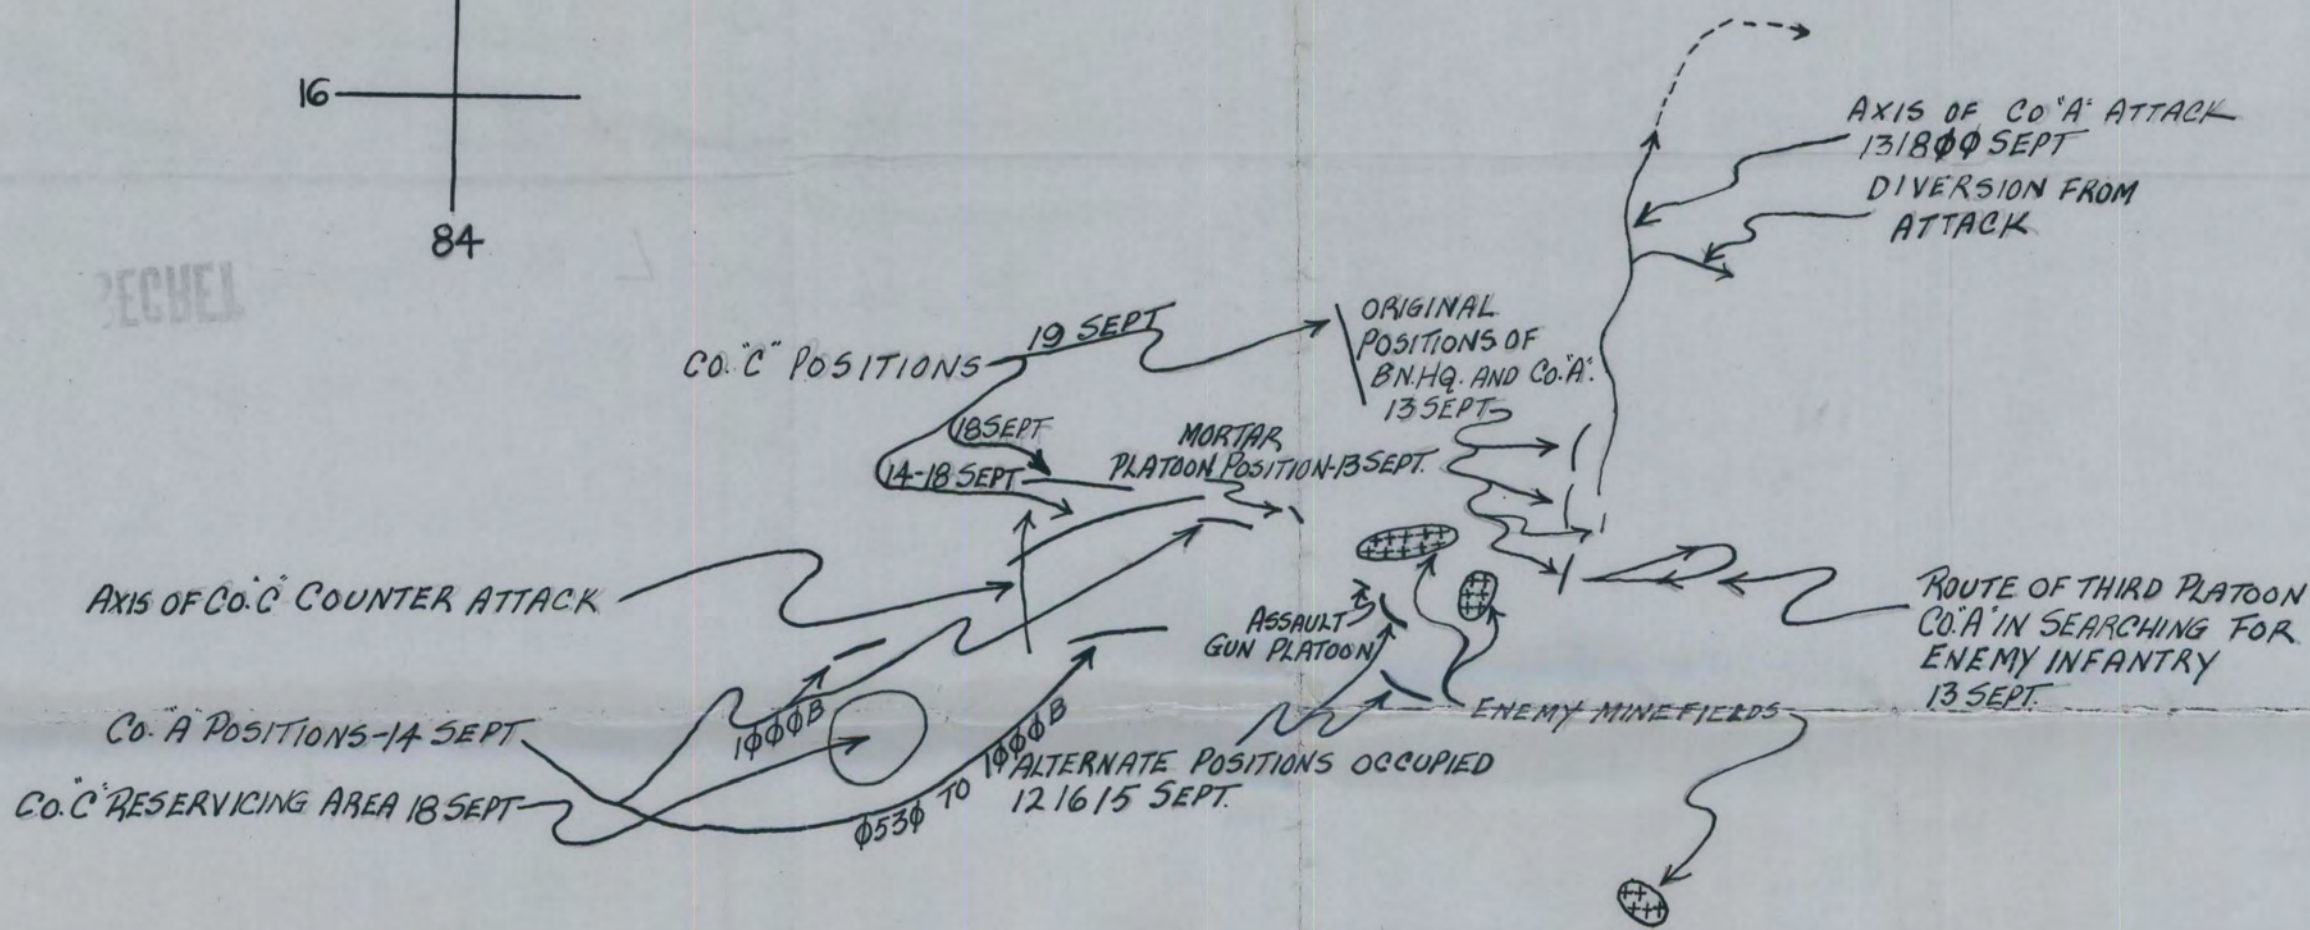 16
84
SECRET
AXIS OF CO "A" ATTACK
1318ØØ SEPT
DIVERSION FROM
ATTACK
CO. "C" POSITIONS
19 SEPT
18 SEPT
14-18 SEPT
ORIGINAL
POSITIONS OF
BN. HQ. AND CO. "A".
13 SEPT
MORTAR
PLATOON POSITION-13 SEPT.
AXIS OF CO. "C" COUNTER ATTACK
ASSAULT
GUN PLATOON
ROUTE OF THIRD PLATOON
CO. "A" IN SEARCHING FOR
ENEMY INFANTRY
13 SEPT.
ENEMY MINEFIELDS
CO. "A" POSITIONS-14 SEPT.
1ØØØB
Ø53Ø TO 1ØØØB
CO. "C" RESERVICING AREA 18 SEPT
ALTERNATE POSITIONS OCCUPIED
121615 SEPT.